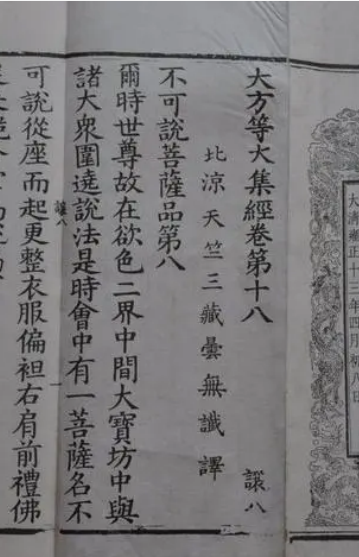 大清雍正十三年四月初八日
大方等大集經卷第十八 讓八
北涼天竺三藏曇無讖譯
不可說菩薩品第八
爾時世尊故在欲色二界中間大寶坊中與
諸大衆圍遶說法是時會中有一菩薩名不
讓八 一
可說從座而起更整衣服偏袒右肩前禮佛